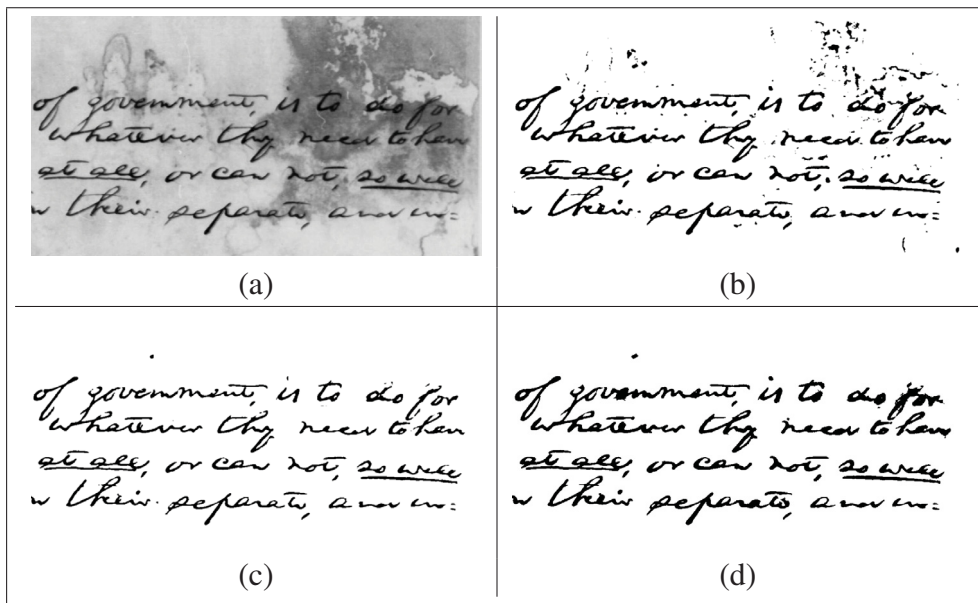 of government, is to do for
whatever they need to have
at all, or can not, so well
n their separate, and in=
(a)
of government, is to do for
whatever they need to have
at all, or can not, so well
n their separate, and in=
(b)
of government, is to do for
whatever they need to have
at all, or can not, so well
n their separate, and in=
(c)
of government, is to do for
whatever they need to have
at all, or can not, so well
n their separate, and in=
(d)